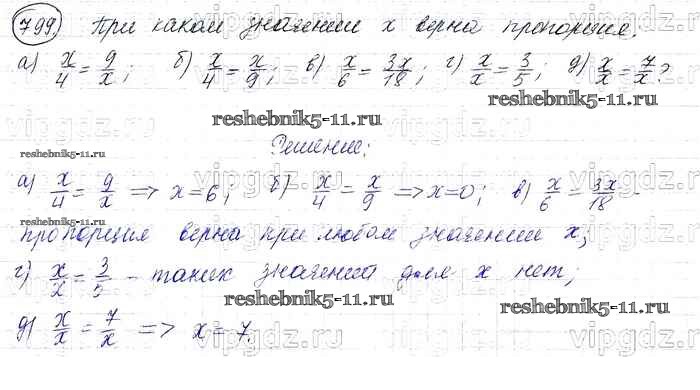 799. При каком значении x верна пропорция.
а) x/4 = 9/x; б) x/4 = x/9; в) x/6 = 3x/18; г) x/x = 3/5; д) x/x = 7/x?
reshebnik5-11.ru reshebnik5-11.ru
Решение:
reshebnik5-11.ru
а) x/4 = 9/x => x=6; б) x/4 = x/9 => x=0; в) x/6 = 3x/18 -
reshebnik5-11.ru
пропорция верна при любом значении x;
г) x/x = 3/5 - таких значений для x нет;
reshebnik5-11.ru reshebnik5-11.ru
д) x/x = 7/x => x=7.
vipgdz.ru vipgdz.ru vipgdz.ru